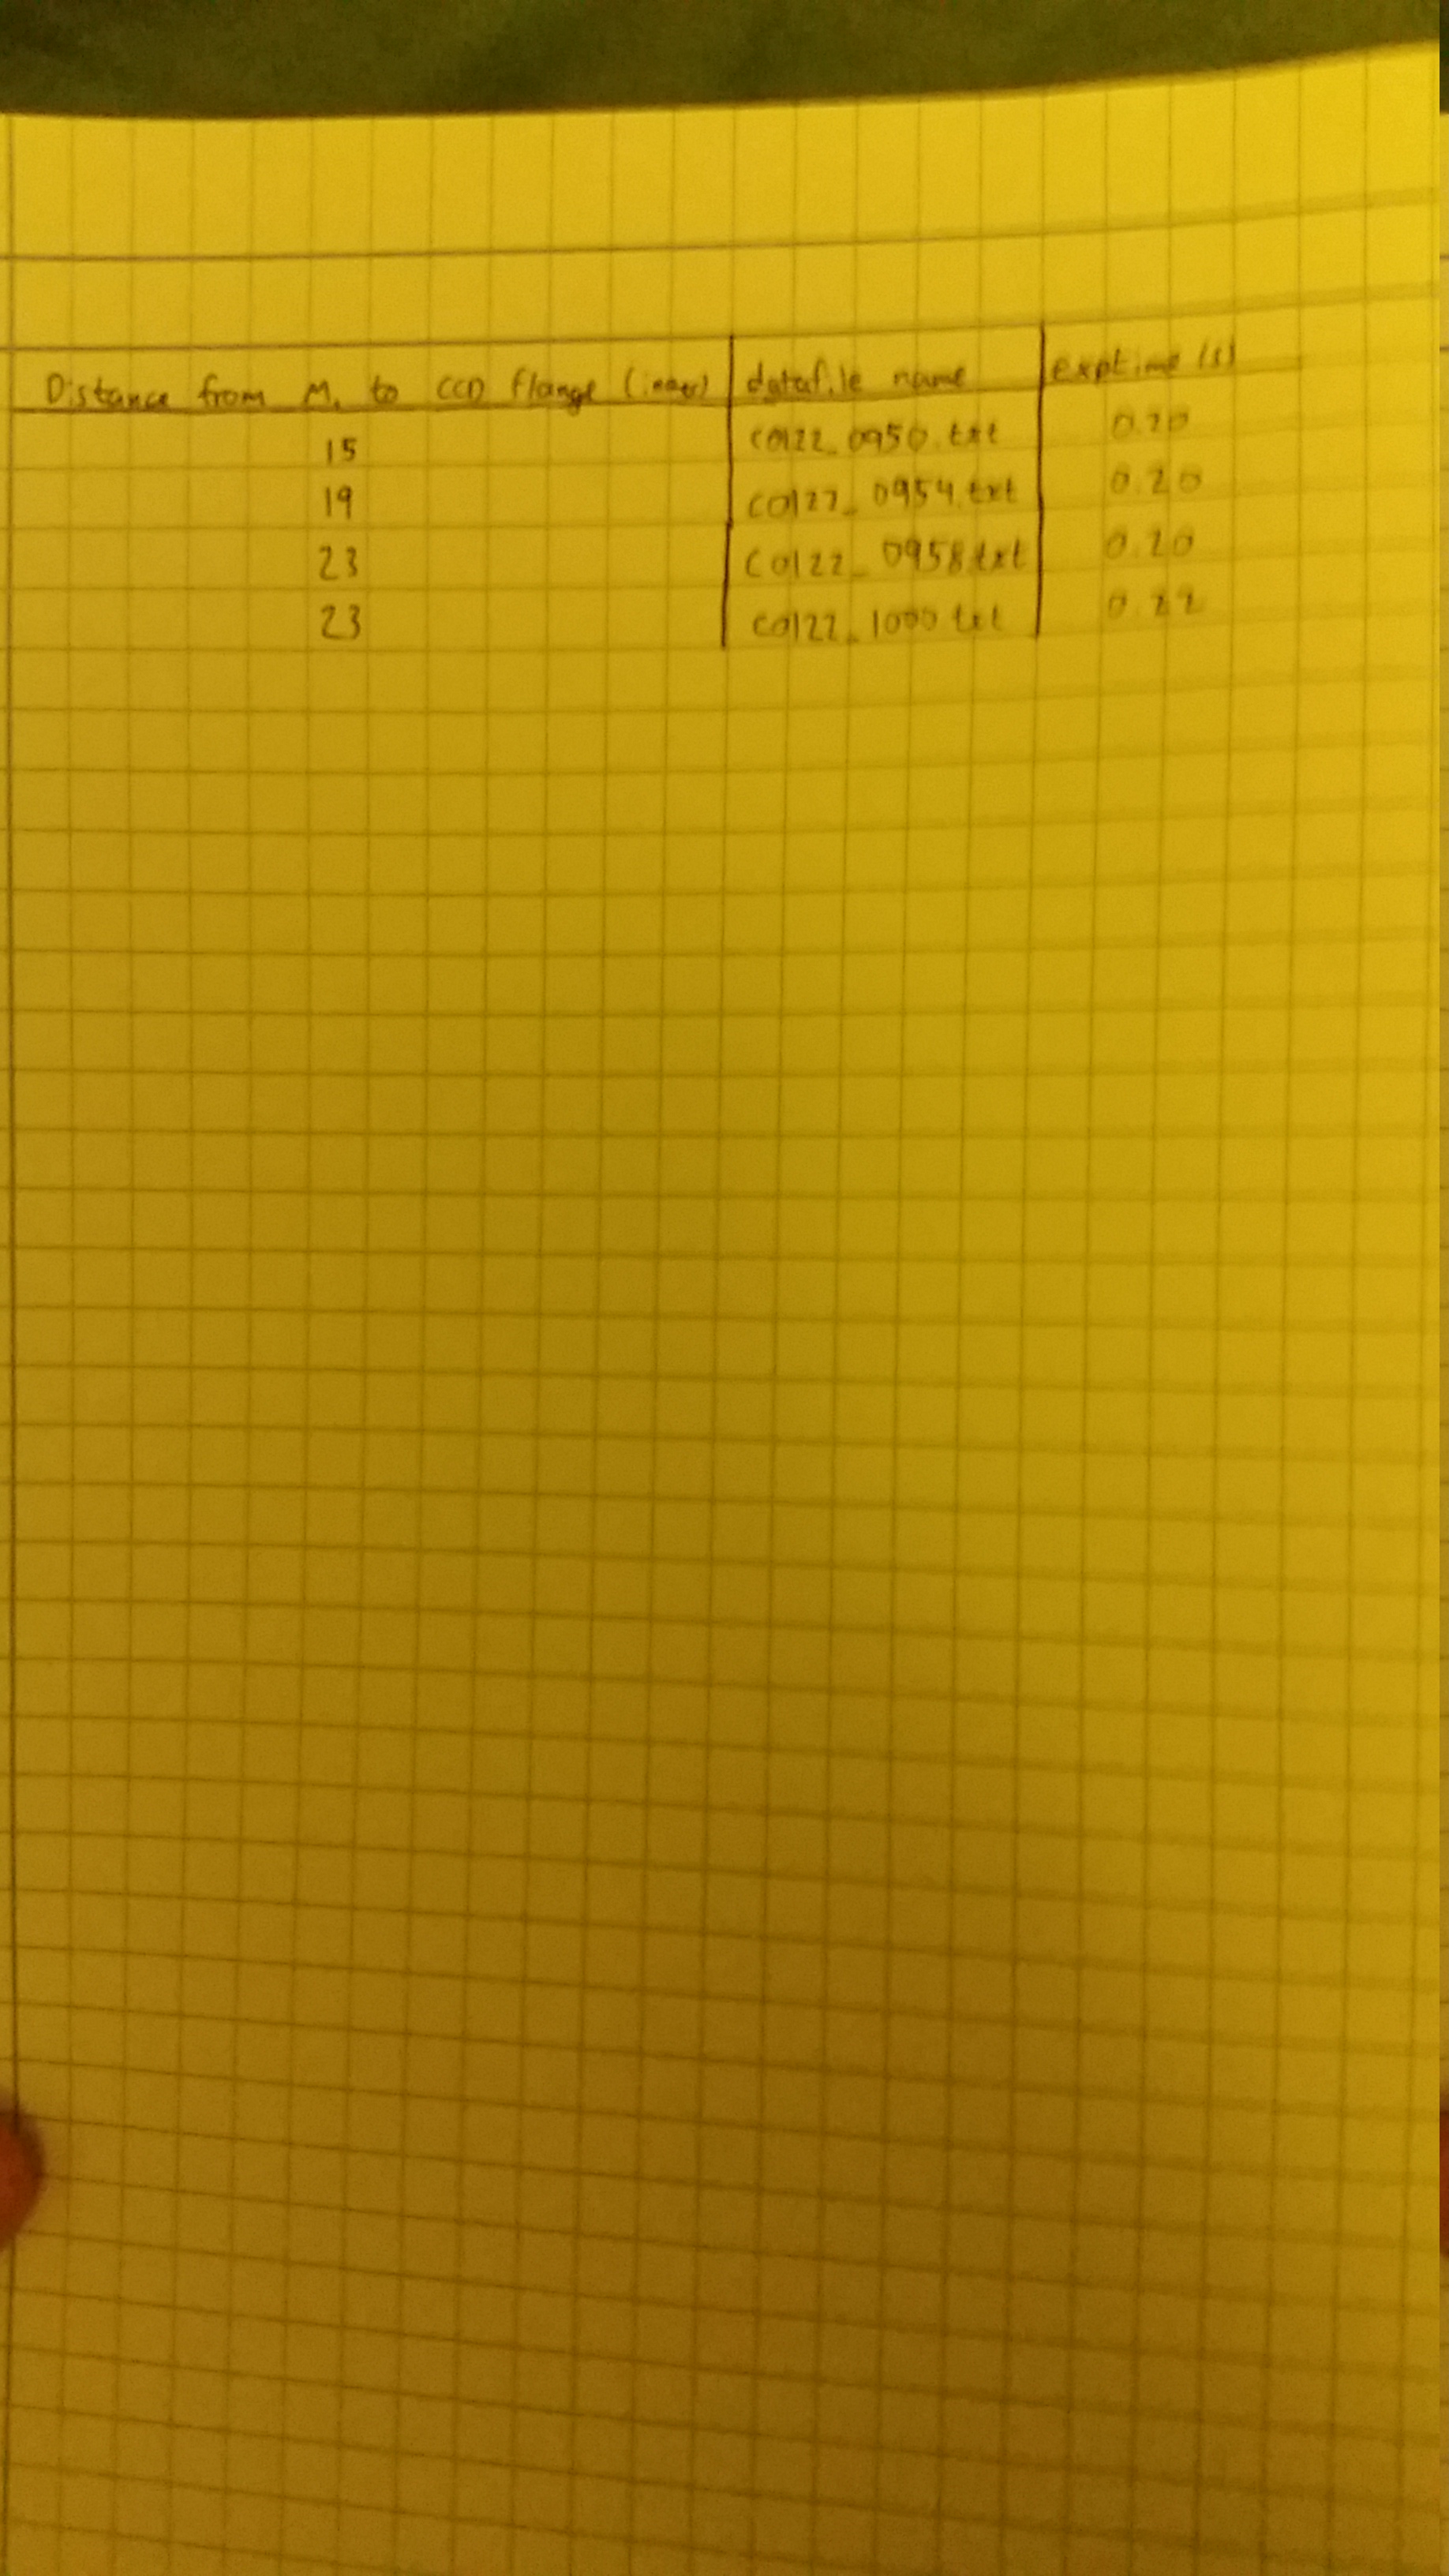 Distance from M₁ to CCD flange (inner) datafile name exptime (s)
15 co122_0950.txt 0.20
19 co122_0954.txt 0.20
23 co122_0958.txt 0.20
23 co122_1000.txt 0.22